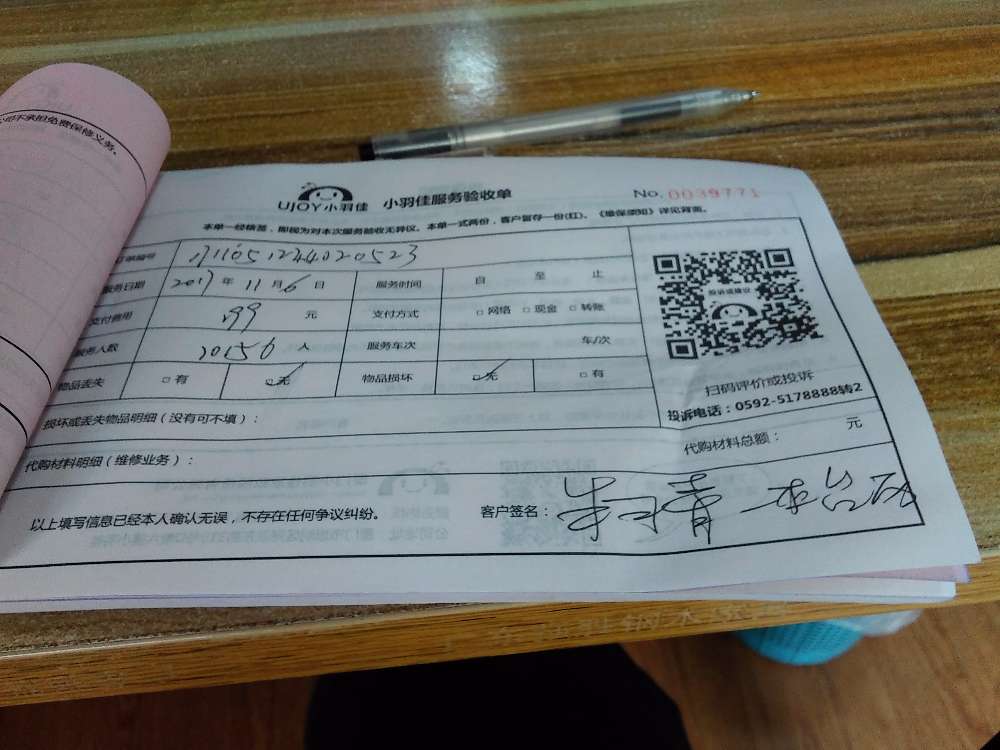 不承担免费保修义务。
UJOY小羽佳 小羽佳服务验收单 No. 0039771
本单一经稽签,即视为对本次服务验收无异议。本单一式两份,客户留存一份(红)。《维保须知》详见背面。
订单编号
服务日期 2017 年 11 月 6 日 服务时间 自 至 止
支付费用 元 支付方式 □ 网络 □ 现金 □ 转账
服务人数 人 服务车次 车/次
物品丢失 □ 有 □ 无 物品损坏 □ 无 □ 有
投诉或建议
扫码评价或投诉
投诉电话:0592-5178888转2
损坏或丢失物品明细(没有可不填):
代购材料总额: 元
代购材料明细(维修业务):
以上填写信息已经本人确认无误,不存在任何争议纠纷。 客户签名: